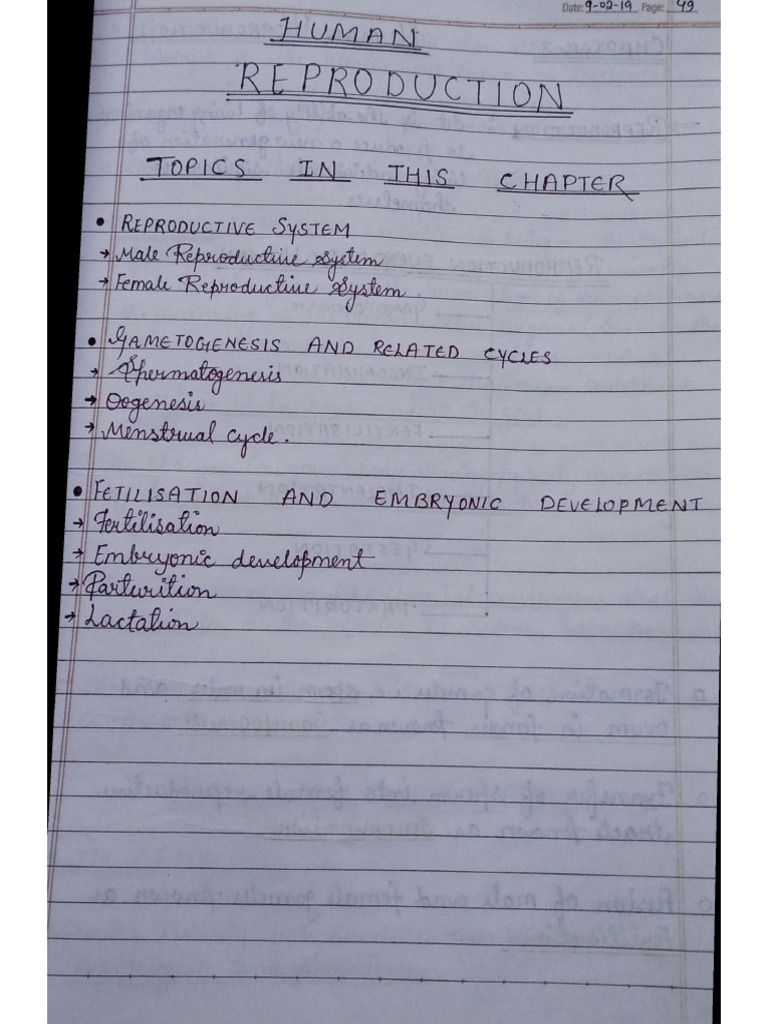 Date: 9-02-19 Page: 49
HUMAN
REPRODUCTION
TOPICS IN THIS CHAPTER
• REPRODUCTIVE SYSTEM
→ Male Reproductive System
→ Female Reproductive System
• GAMETOGENESIS AND RELATED CYCLES
→ Spermatogenesis
→ Oogenesis
→ Menstrual cycle.
• FETILISATION AND EMBRYONIC DEVELOPMENT
→ Fertilisation
→ Embryonic development
→ Parturition
→ Lactation